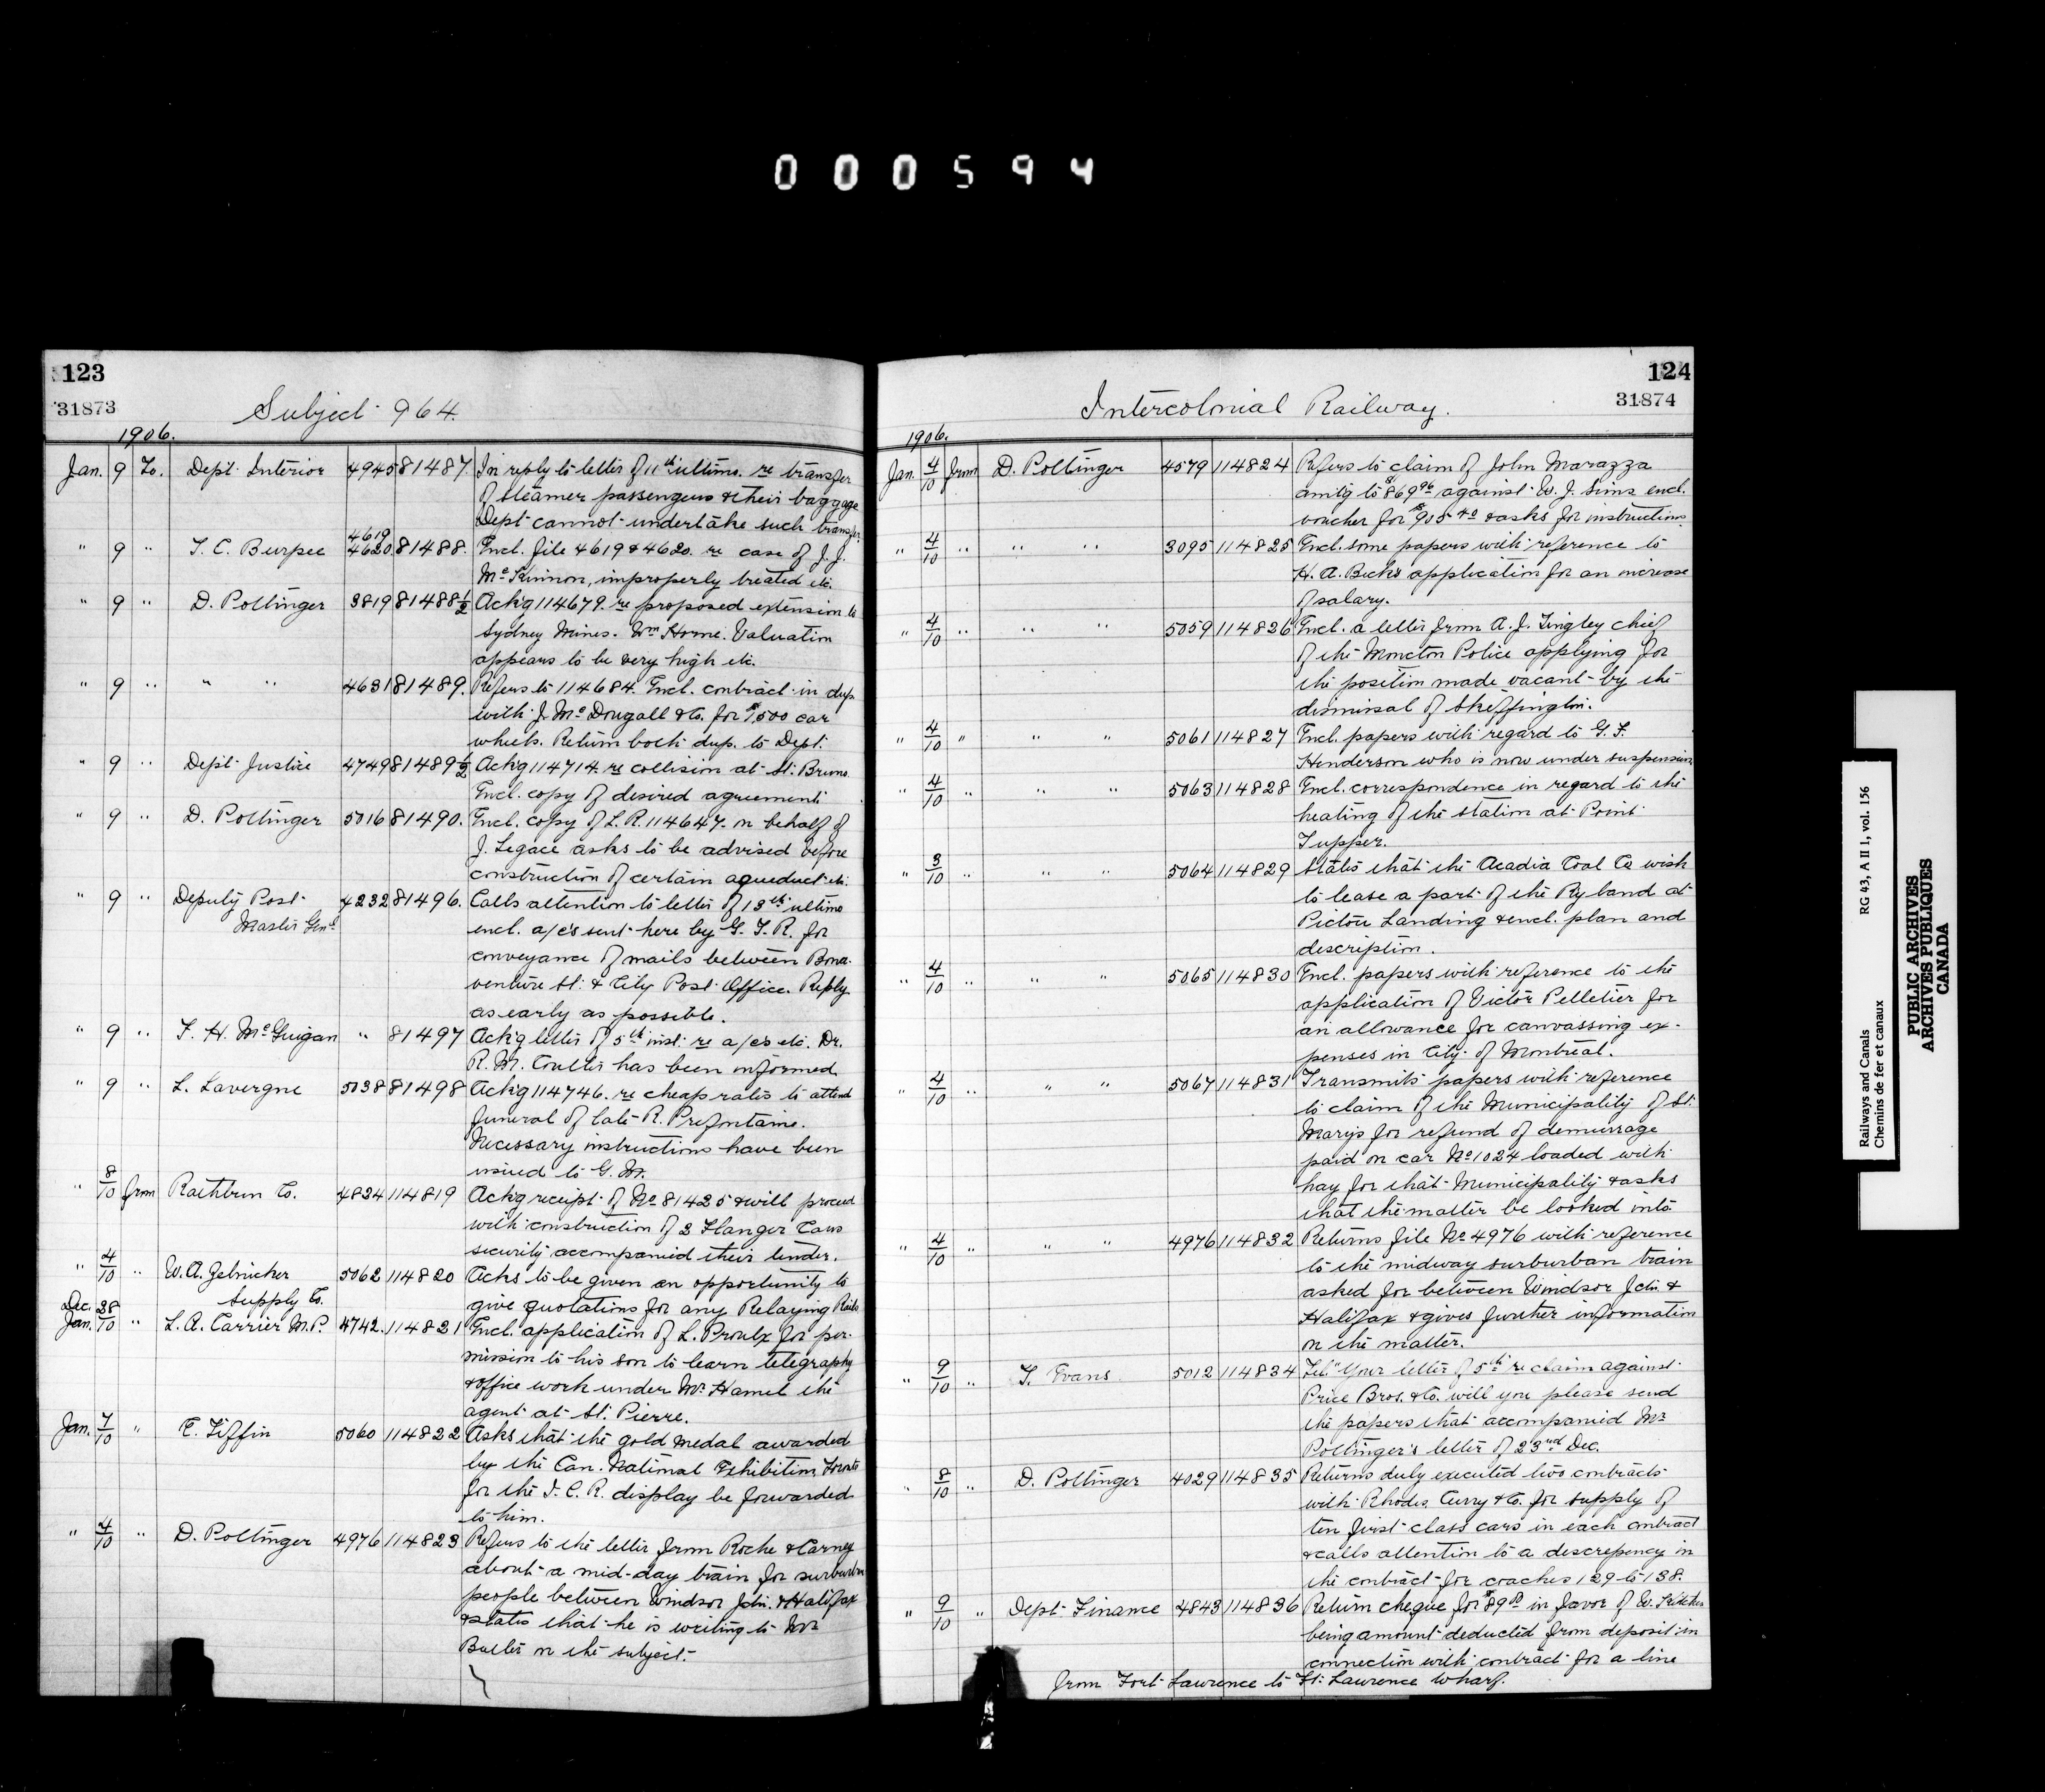 000594
123
31873
Subject 964.
1906.
Jan. 9 To. Dept. Interior 4945 81487. In reply to letter of 11th ultimo. re transfer
of steamer passengers & their baggage
Dept cannot undertake such transfer.
" 9 " T. C. Burpee 4619 4620 81488. Encl. file 4619 & 4620. re case of J. J.
McKinnon, improperly treated etc.
" 9 " D. Pottinger 3819 81488½ Ackg 114679. re proposed extension to
Sydney Mines. Wm Horne. Valuation
appears to be very high etc.
" 9 " " " 4631 81489. Refers to 114684. Encl. contract in dup.
with J. McDougall & Co. for 1,500 car
wheels. Return both dup. to Dept.
" 9 " Dept Justice 4749 81489½ Ackg 114714. re collision at St. Bruno.
Encl. copy of desired agreement
" 9 " D. Pottinger 5016 81490. Encl. copy of L.R. 114647. on behalf of
J. Legace asks to be advised before
construction of certain aqueduct etc.
" 9 " Deputy Post 4232 81496. Calls attention to letter of 13th ultimo
Master Genl encl. a/cs sent here by G. T. R. for
conveyance of mails between Bona-
venture St. & City Post Office. Reply
as early as possible.
" 9 " F. H. McGuigan " 81497 Ackg letter of 5th inst. re a/cs etc. Dr.
R. M. Coulter has been informed.
" 9 " L. Lavergne 5038 81498 Ackg 114746. re cheap rates to attend
funeral of late R. Prefontaine.
Necessary instructions have been
issued to G. M.
" 8/10 from Rathbun Co. 4824 114819 Ackg receipt of No 81425 & will proceed
with construction of 3 Flanger Cars
security accompanied their tender.
" 4/10 " W. A. Zelnicker 5062 114820 Asks to be given an opportunity to
Supply Co. give quotations for any Relaying Rails
Dec. 28
Jan. /10 " L. A. Carrier M.P. 4742. 114821 Encl. application of L. Proulx for per-
mission to his son to learn telegraphy
& office work under Mr Hamel the
agent at St. Pierre.
Jan. 7/10 " E. Tiffin 5060 114822 Asks that the gold medal awarded
by the Can. National Exhibition Toronto
for the I. C. R. display be forwarded
to him.
" 4/10 " D. Pottinger 4976 114823 Refers to the letter from Roche & Carney
about a mid-day train for surburban
people between Windsor Jctn. & Halifax
& states that he is writing to Mr
Butler on the subject.
124
31874
Intercolonial Railway.
1906.
Jan. 4/10 from D. Pottinger 4579 114824 Refers to claim of John Marazza
amtg to $869 96 against W. J. Sims encl.
voucher for $905 40 & asks for instructions.
" 4/10 " " " 3095 114825 Encl. some papers with reference to
H. A. Beck's application for an increase
of salary.
" 4/10 " " " 5059 114826 Encl. a letter from A. J. Tingley chief
of the Moncton Police applying for
the position made vacant by the
dismissal of Skeffington.
" 4/10 " " " 5061 114827 Encl. papers with regard to G. F.
Henderson who is now under suspension
" 4/10 " " " 5063 114828 Encl. correspondence in regard to the
heating of the station at Point
Tupper.
" 3/10 " " " 5064 114829 States that the Acadia Coal Co wish
to lease a part of the Ry land at
Pictou Landing & encl. plan and
description.
" 4/10 " " " 5065 114830 Encl. papers with reference to the
application of Victor Pelletier for
an allowance for canvassing ex-
penses in City of Montreal.
" 4/10 " " " 5067 114831 Transmits papers with reference
to claim of the Municipality of St.
Mary's for refund of demurrage
paid on car No 1024 loaded with
hay for that Municipality & asks
that the matter be looked into
" 4/10 " " " 4976 114832 Returns file No 4976 with reference
to the midway surburban train
asked for between Windsor Jctn. &
Halifax & gives further information
on the matter.
" 9/10 " T. Evans 5012 114834 Tel. "Your letter of 5th re claim against
Price Bros. & Co. will you please send
the papers that accompanied Mr
Pottinger's letter of 23rd Dec.
" 8/10 " D. Pottinger 4029 114835 Returns duly executed two contracts
with Rhodes, Curry & Co. for supply of
ten first class cars in each contract
& calls attention to a discrepency in
the contract for coaches 129 to 138.
" 9/10 " Dept Finance 4843 114836 Return cheque for $89 in favor of W.
being amount deducted from deposit in
connection with contract for a line
from Fort Lawrence to St. Lawrence Wharf.
Railways and Canals RG 43, A II 1, vol. 156
Chemins de fer et canaux
PUBLIC ARCHIVES
ARCHIVES PUBLIQUES
CANADA